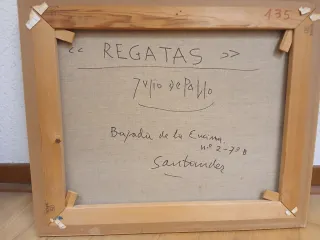 435
« REGATAS »
Julio de Pablo
Bajada de la Encina
nº 2-7º B
Santander